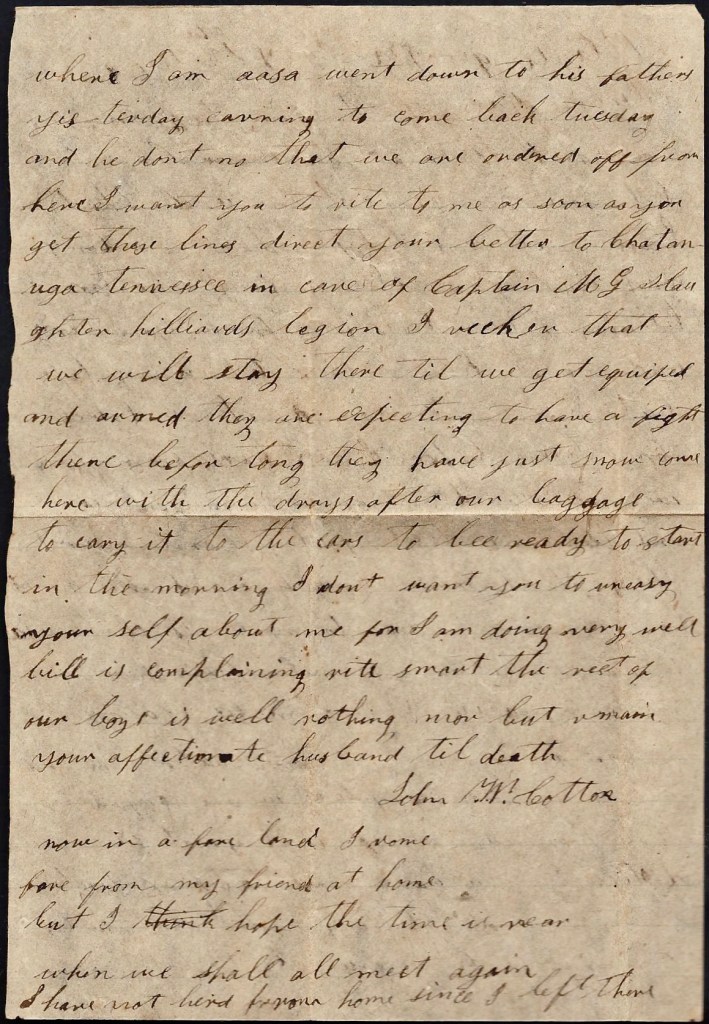 where I am aasa went down to his fathers
yis terday earning to come back tuesday
and he dont no that we are ordered off from
here I want you to rite to me as soon as you
get these lines direct your letter to Chatan-
uga tennessee in care of Captain M G Slau
ghter hilliards legion I recken that
we will stay there til we get equiped
and armed they are expecting to have a fight
there befor long they have just now come
here with the drays after our baggage
to cary it to the cars to bee ready to start
in the morning I dont want you to uneasy
your self about me for I am doing very well
bill is complaining rite smart the rest of
our boys is well nothing mor but remain
your affectionate husband til death
John W. Cotton
now in a fare land I rome
fare from my friend at home
but I think hope the time is near
when we shall all meet again
I have not herd from home since I left there